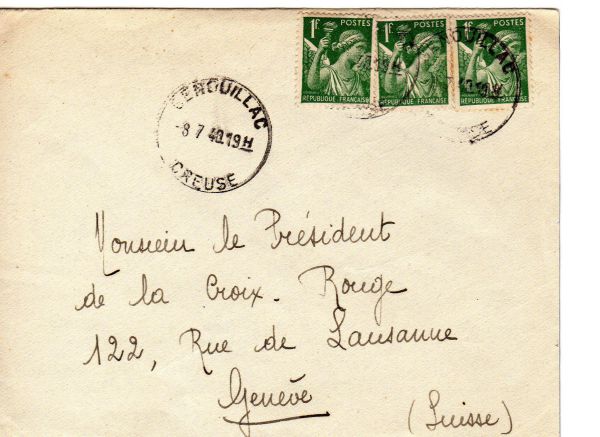 1F POSTES 1F POSTES 1F POSTES
RÉPUBLIQUE FRANÇAISE RÉPUBLIQUE FRANÇAISE RÉPUBLIQUE FRANÇAISE
GENOUILLAC
-8 7 40.19H
CREUSE
Monsieur le Président
de la Croix-Rouge
122, Rue de Lausanne
Genève
(Suisse)